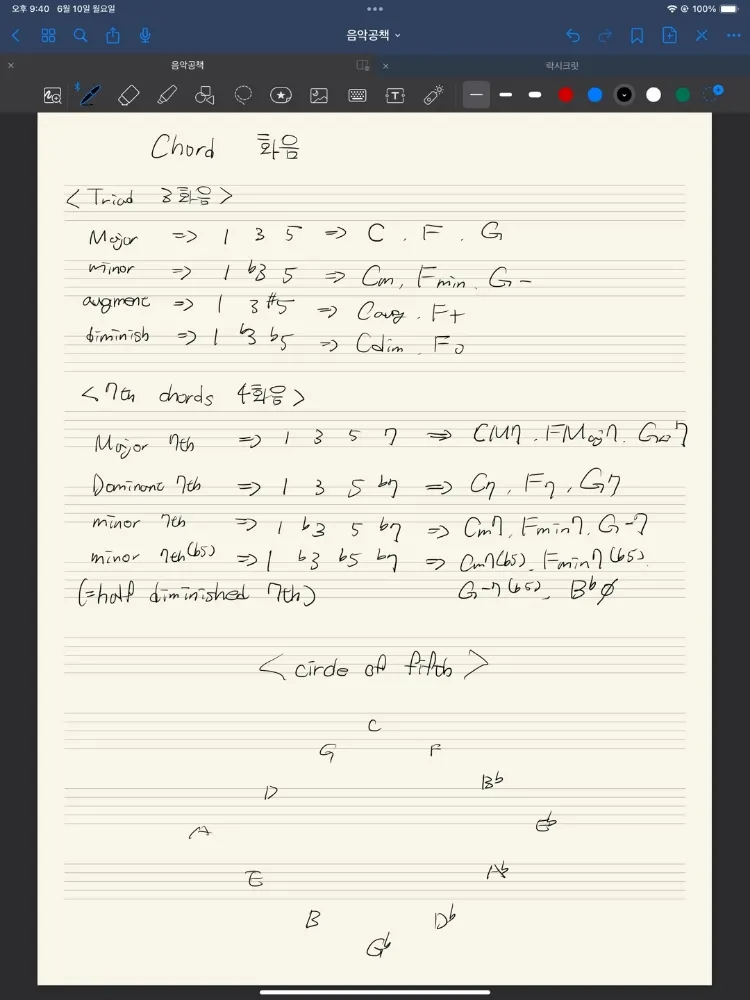 오후 9:40 6월 10일 월요일 100%
음악공책
음악공책 락시크릿
Chord 화음
<Triad 3화음>
Major => 1 3 5 => C, F, G
minor => 1 b3 5 => Cm, Fmin, G-
augment => 1 3 #5 => Caug, F+
diminish => 1 b3 b5 => Cdim, Fo
<7th chords 4화음>
Major 7th => 1 3 5 7 => CM7, FMaj7, G△7
Dominant 7th => 1 3 5 b7 => C7, F7, G7
minor 7th => 1 b3 5 b7 => Cm7, Fmin7, G-7
minor 7th(b5) => 1 b3 b5 b7 => Cm7(b5), Fmin7(b5),
(=half diminished 7th) G-7(b5), Bbø
<circle of fifth>
C
G F
D Bb
A Eb
E Ab
B Db
Gb